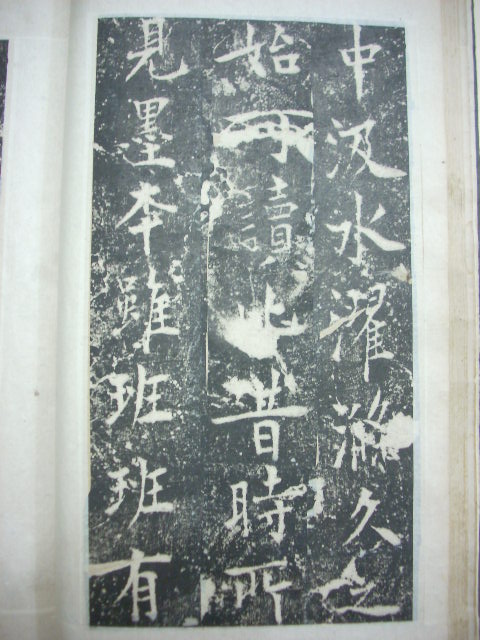 中汲水濯滌久之
始可讀昔時所
見墨本雖班班有